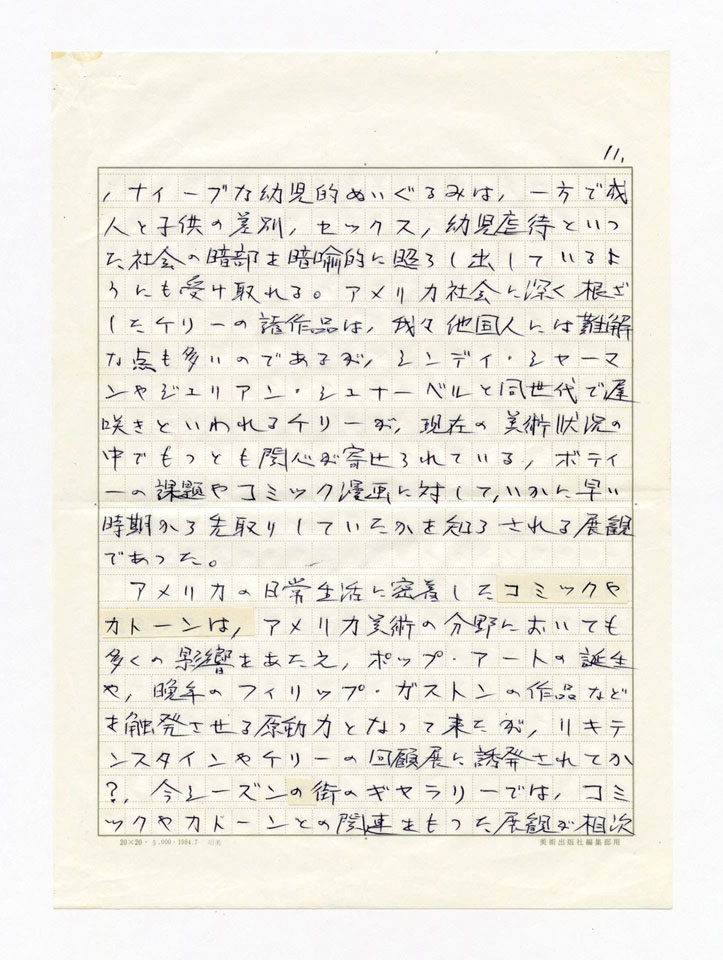 11.
，ナイーブな幼児的ぬいぐるみは，一方で成
人と子供の差別，セックス，幼児虐待といっ
た社会の暗部を暗喩的に照らし出しているよ
うにも受け取れる。アメリカ社会に深く根ざ
したケリーの諸作品は，我々他国人には難解
な点も多いのであるが，シンディ・シャーマ
ンやジュリアン・シュナーベルと同世代で遅
咲きといわれるケリーが，現在の美術状況の
中でもっとも関心が寄せられている，ボディ
ーの課題やコミック漫画に対して，いかに早い
時期から先取りしていたかを知らされる展観
であった。
アメリカの日常生活に密着したコミックや
カトーンは，アメリカ美術の分野においても
多くの影響をあたえ，ポップ・アートの誕生
や，晩年のフィリップ・ガストンの作品など
を触発させる原動力となって来たが，リキテ
ンスタインやケリーの回顧展に誘発されてか
？，今シーズンの街のギャラリーでは，コミ
ックやカトーンとの関連をもった展観が相次
20×20・5,000・1984.7 明美
美術出版社編集部用